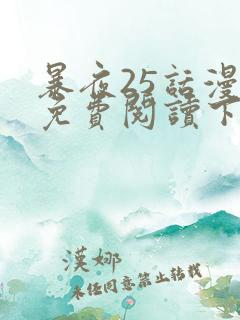 暴夜25話漫
免費閱讀下
漢娜
未經同意禁止轉載